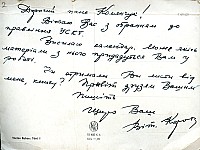 2
Дорогий пане Колего!
Вітаю Вас з обранням до
правління УСКТ.
Висилаю календар. Може якісь
матеріали з нього придадуться Вам у
роботі.
Чи отримали Ви листи від
мене, книжку? Привіт друзям Вашим
Пишіть
Щиро Ваш